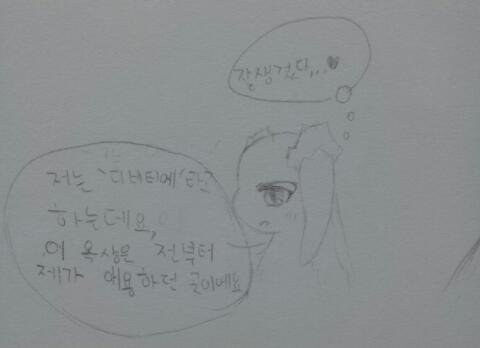 잘생겼다...♥
저는 '디버티에'라고
하는데요,
이 옥상은 전부터
제가 애용하던 곳이에요